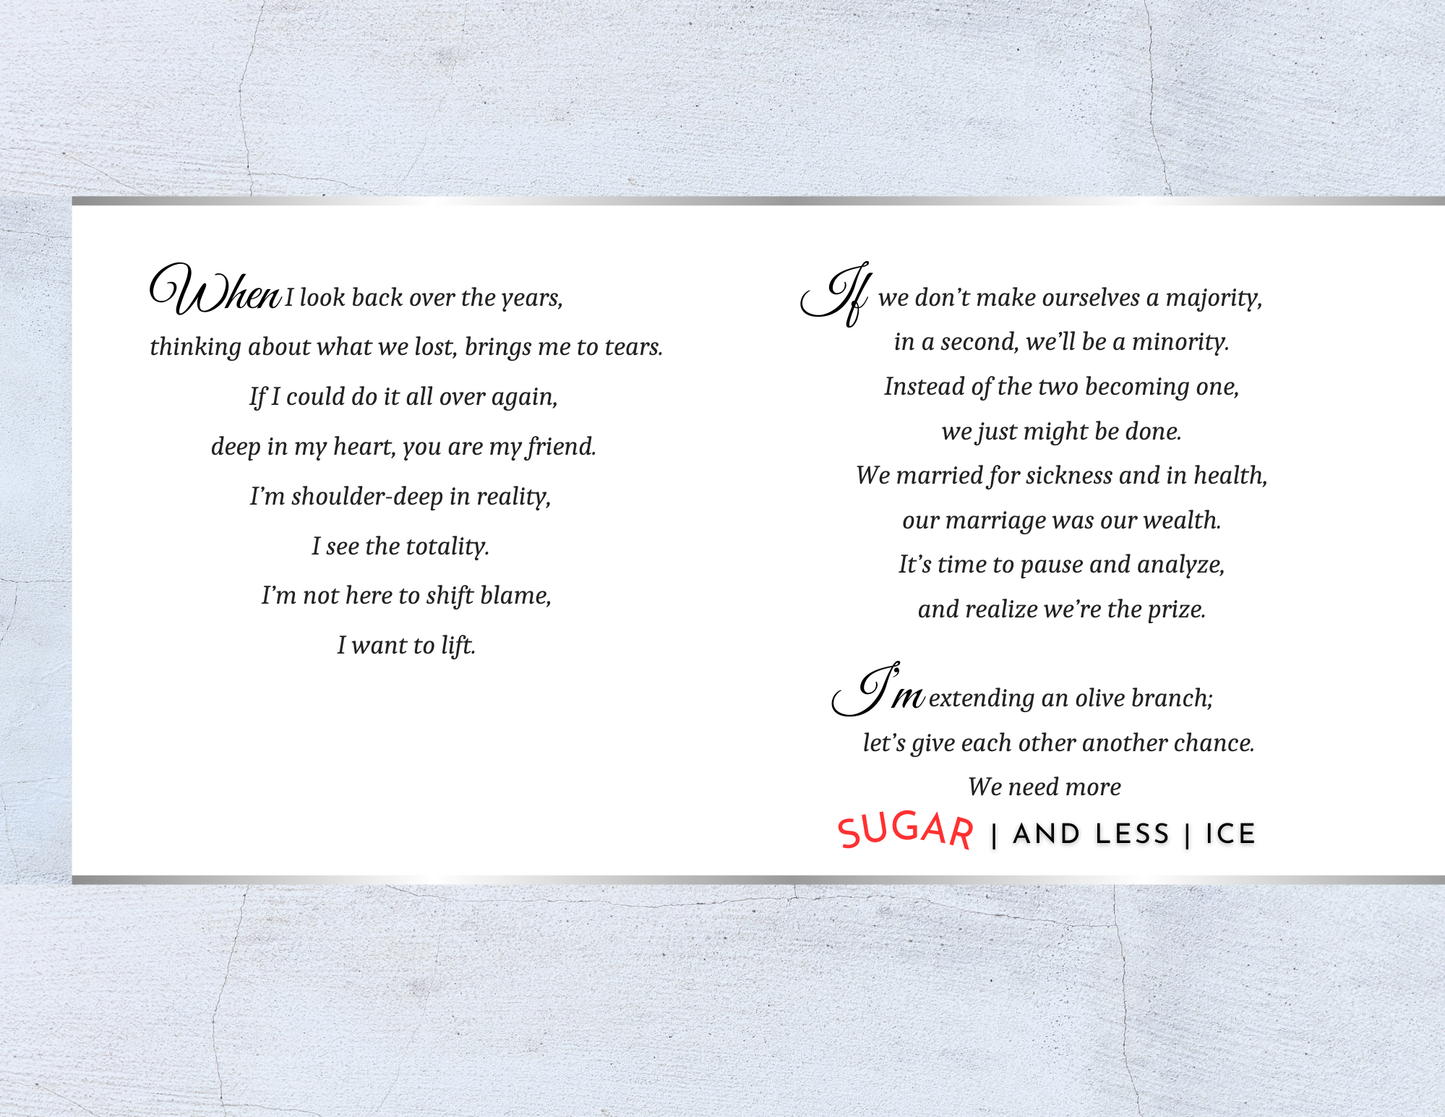 When I look back over the years,
thinking about what we lost, brings me to tears.
If I could do it all over again,
deep in my heart, you are my friend.
I’m shoulder-deep in reality,
I see the totality.
I’m not here to shift blame,
I want to lift.
If we don’t make ourselves a majority,
in a second, we’ll be a minority.
Instead of the two becoming one,
we just might be done.
We married for sickness and in health,
our marriage was our wealth.
It’s time to pause and analyze,
and realize we’re the prize.
I’m extending an olive branch;
let’s give each other another chance.
We need more
SUGAR | AND LESS | ICE